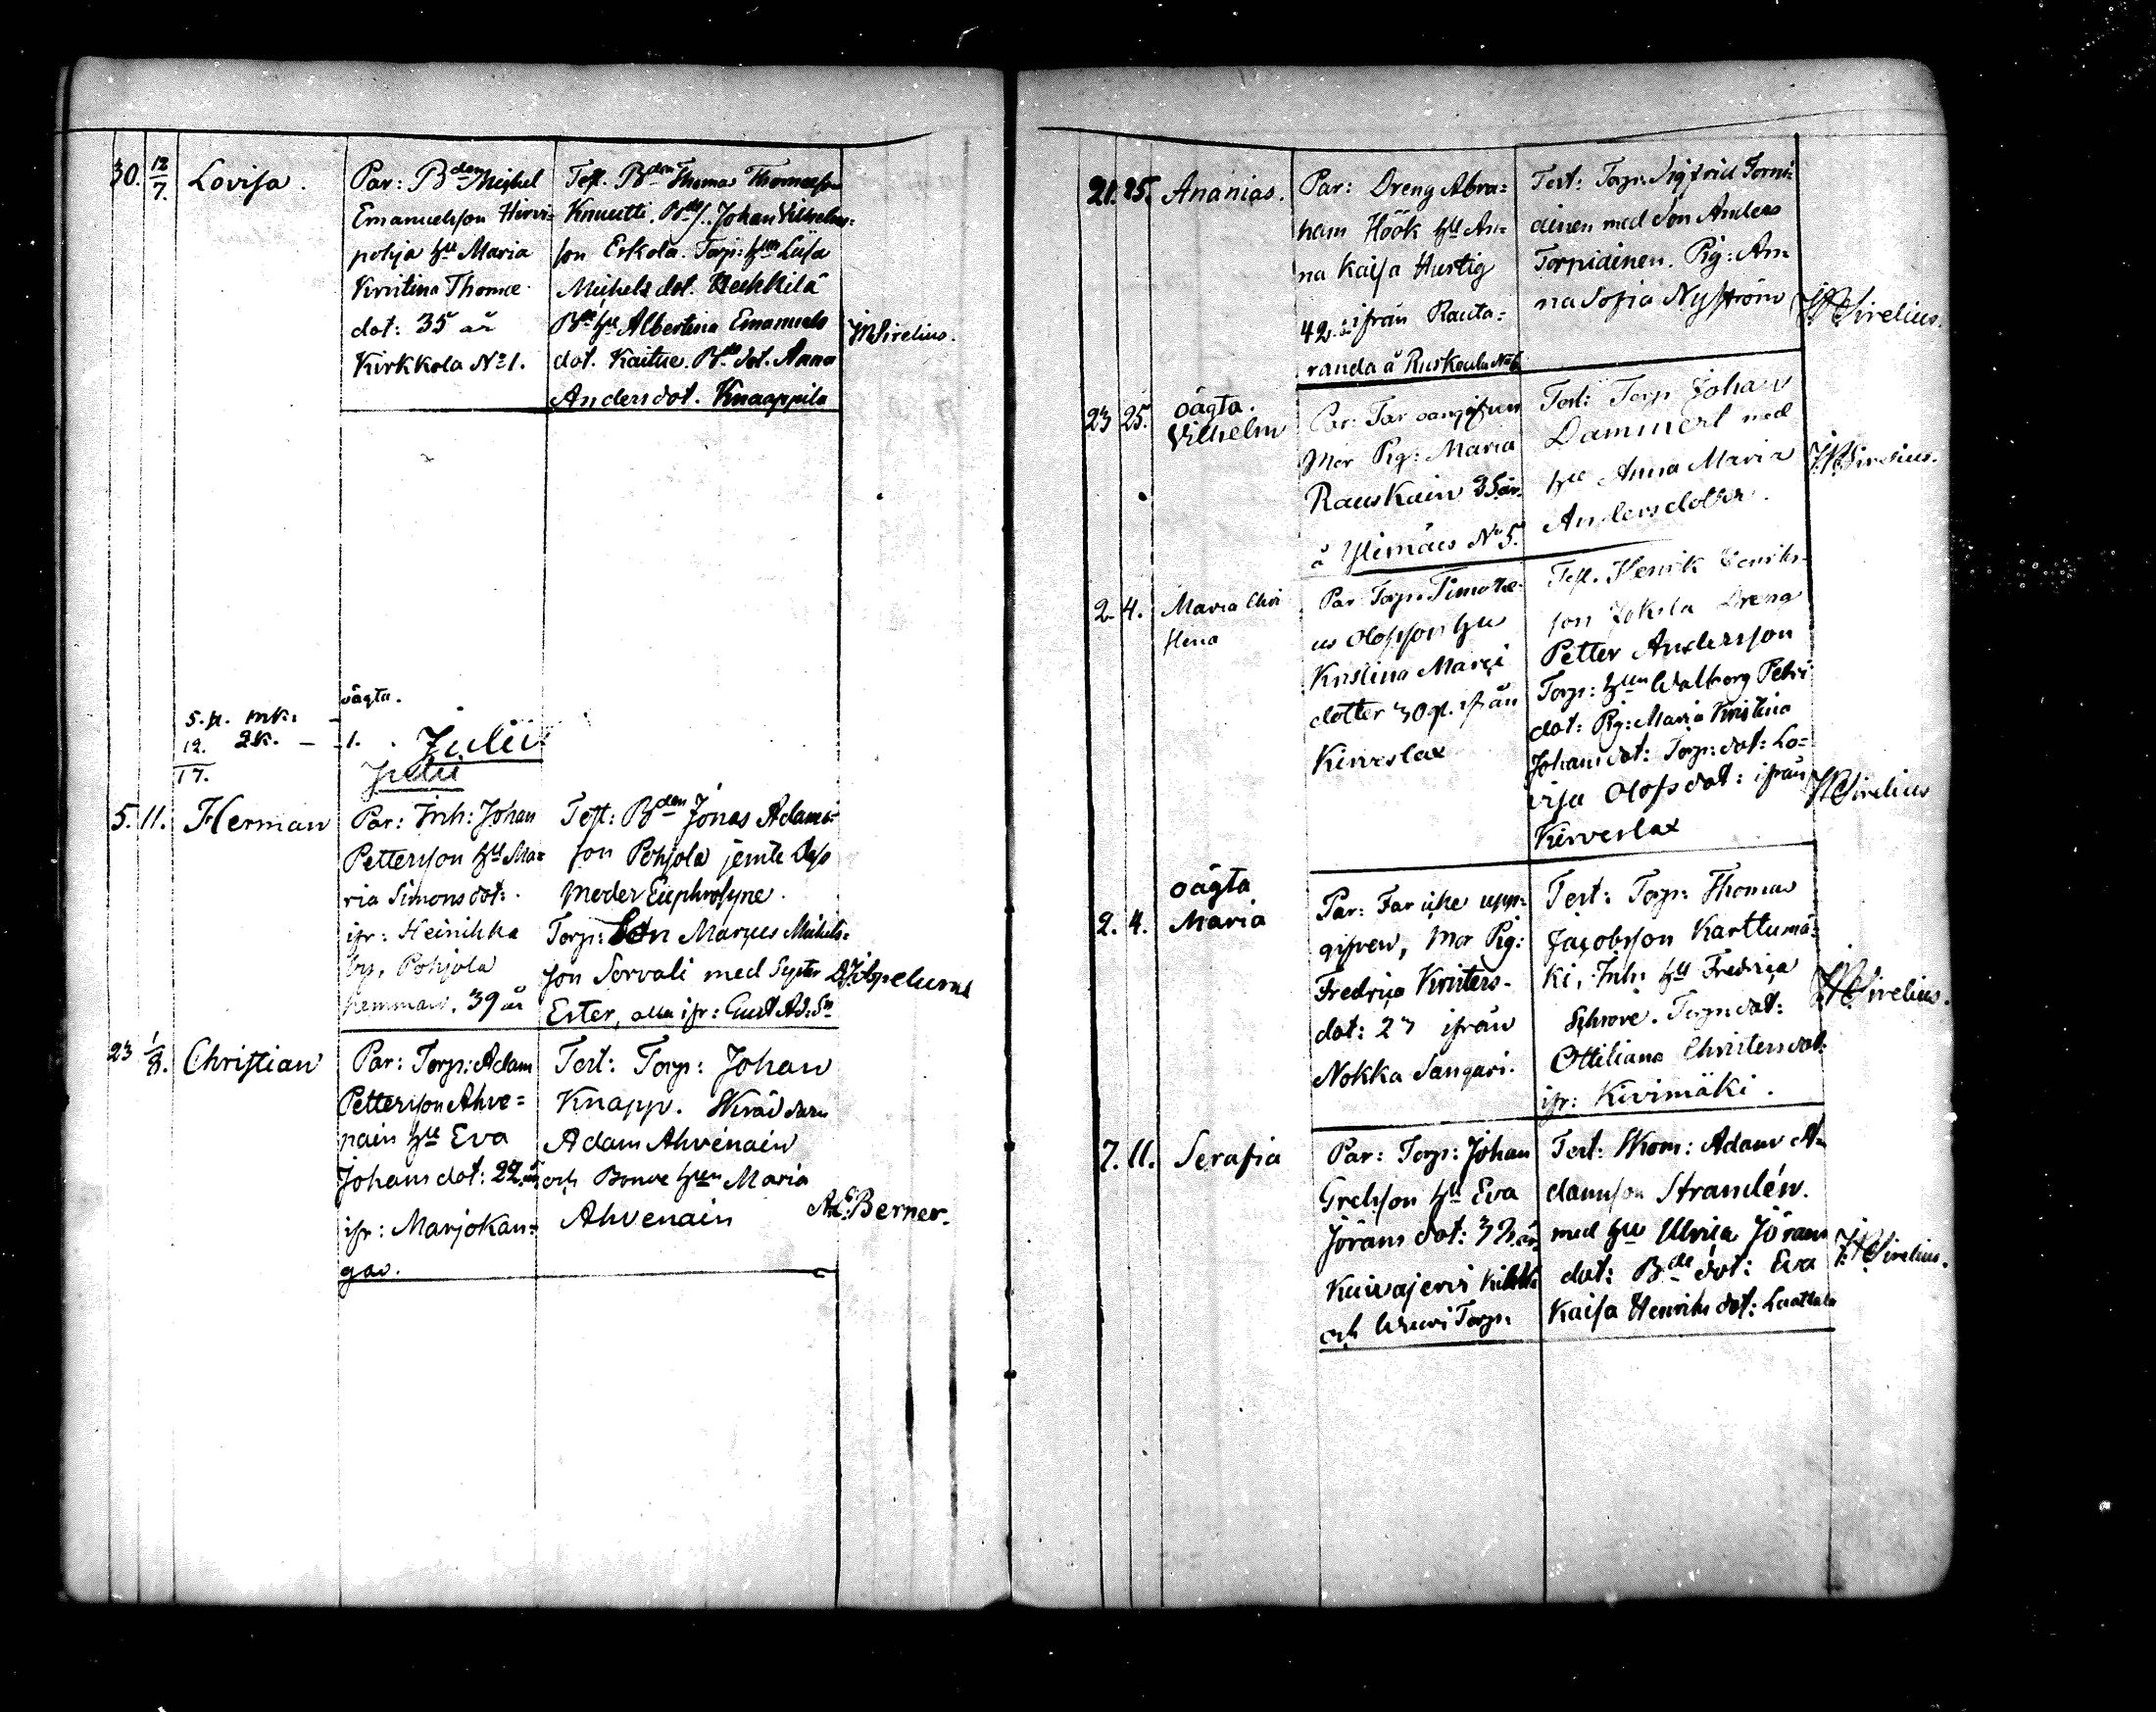 30. 12/7. Lovisa.
Par: Bden Michel
Emanuelsson Hirvi-
pohja hu Maria
Kristina Thomæ
dot: 35 år
Kirkkola No 1.
Test. Bden Thomas Thomasson
Knuutti. Bdes. Johan Vilhelms-
son Eskola. Torp: hun Lisa
Michels dot. Heikkilä
Bde hu Albertina Emanuels
dot. Kaitue. Bde dot. Anna
Anders dot. Knaappila
JWSirelius.
oägta.
5. g. mk. —
12. 2k. — 1.
17.
Julii
Julii
5. 11. Herman
Par: Inh: Johan
Pettersson hu Ma=
ria Simonsdot:
ifr: Heinikka
by, Pohjola
hemman. 39 år
Test: Bden Jonas Adams-
son Pohjola jemte dess
moder Euphrosyne.
Torp: Son Marcus Michels=
son Sorvali med Syster
Ester, alla ifr: Gust Ad: Sn
23 1/8. Christian
Par: Torp: Adam
Pettersson Ahve=
nain hu Eva
Johans dot: 22 år
ifr: Marjokan=
gas.
Test: Torp: Johan
Knapp. Skräddaren
Adam Ahvenain
och Bonde hun Maria
Ahvenain
A.G. Berner.
21. 25. Ananias.
Par: Dreng Abra=
ham Höök hu An=
na Kaisa Hurtig
42 å ifrån Rauta=
randa å Ruskeala No 6
Test: Torp: Sigfrid Torni=
ainen med son Anders
Torpidinen. Pig: An=
na Sofia Nyström
JWSirelius.
23 25. oägta.
Vilhelm
Par: Far oangifven
Mor Pig: Maria
Rauskain 35 år
å Ylimäes No 5.
Test: Torp Johan
Dammert med
hu Anna Maria
Andersdotter.
JWSirelius.
2. 4. Maria Chri
stina
Par: Torp: Timothe-
us Olofsson hu
Kristina Marci
dotter 30 g. ifrån
Kirveslax
Test. Henrik Henriks-
son Jokela Dreng
Petter Andersson
Torp: hun Walborg Petri
dot: Pig: Maria Kristina
Johans dot: Torp: dot: Lo=
visa Olofs dot: ifrån
Kirveslax
JWSirelius
oägta
2. 4. Maria
Par: Far icke upp=
gifven, Mor Pig:
Fredrica Kristers-
dot: 27 ifrån
Nokka Sangari.
Test: Torp: Thomas
Jacobsson Karttumä=
ki, Inh: hu Fredrica
Schrove. Torp: dot:
Ottiliana Christersdot:
ifr: Kivimäki.
JWSirelius.
7. 11. Serafia
Par: Torp: Johan
Grelsson hu Eva
Jörans dot: 32 år
Kuivajervi
och Torp:
Test: Skom: Adam A=
damsson Strandén.
med hu Ulrica Jörans
dot: Bde dot: Eva
Kaisa Henriks dot: Laattala
JWSirelius.